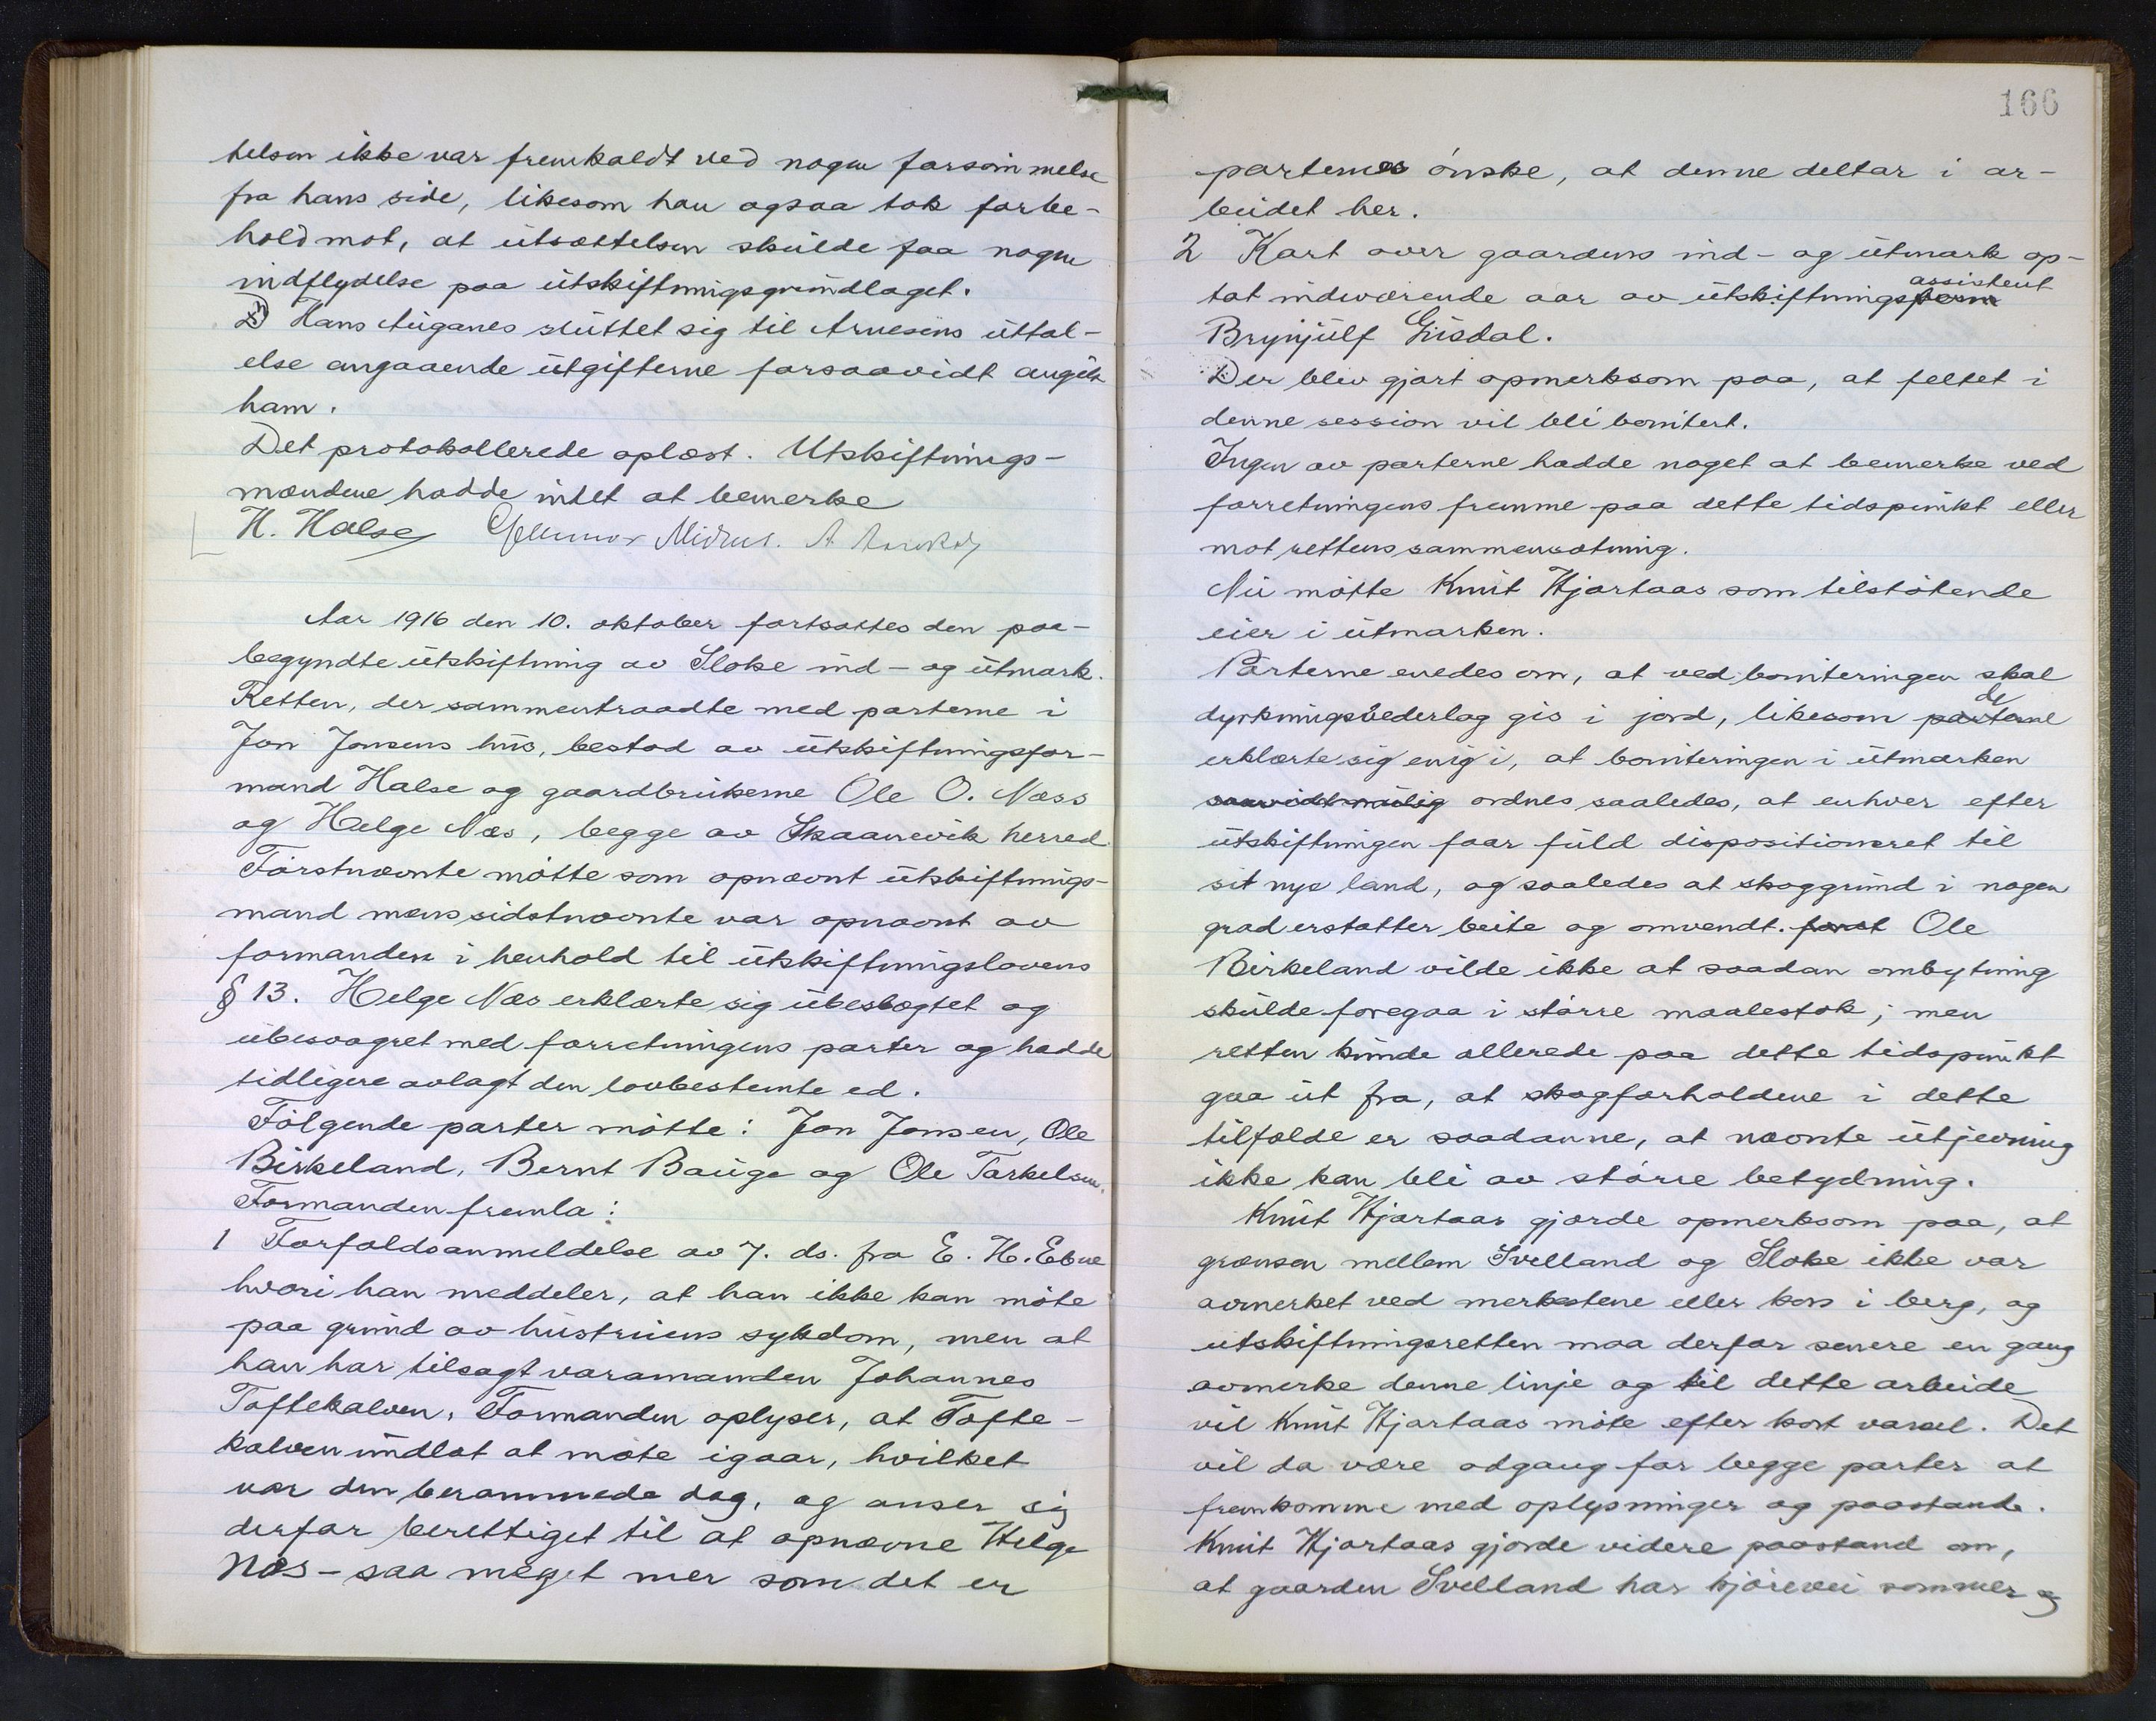 telsen ikke var fremkaldt ved nogen forsømmelse
fra hans side, likesom han ogsaa tok forbe-
hold mot, at utsættelsen skulde faa nogen
indflydelse paa utskiftningsgrundlaget.
Hans Auganes sluttet sig til Arnesens uttal-
else angaaende utgifterne forsaavidt angik
ham.
Det protokollerede oplæst. Utskiftnings-
mændene hadde intet at bemerke
H. Halse
Aar 1916 den 10. oktober fortsattes den paa-
begyndte utskiftning av Sloke ind- og utmark.
Retten, der sammentraadte med parterne i
Jon Jonsens hus, bestod av utskiftningsfor-
mand Halse og gaardbrukerne Ole O. Næss
og Helge Næs, begge av Skaanevik herred.
Førstnævnte møtte som opnævnt utskiftnings-
mand mens sidstnævnte var opnævnt av
formanden i henhold til utskiftningslovens
§ 13. Helge Næs erklærte sig ubeslegtet og
ubesvogret med forretningens parter og hadde
tidligere avlagt den lovbestemte ed.
Følgende parter møtte: Jon Jonsen, Ole
Birkeland, Bernt Bauge og Ole Torkelsen.
Formanden fremla:
1 Forfaldsanmeldelse av 7. ds. fra E. H. Ebne
hvori han meddeler, at han ikke kan møte
paa grund av hustruens sykdom, men at
han har tilsagt varamanden Johannes
Toftekalven. Formanden oplyser, at Tofte-
kalven undlot at møte igaar, hvilket
var den berammede dag, og anser sig
derfor berettiget til at opnævne Helge
Næs - saa meget mer som det er
166
partenes ønske, at denne deltar i ar-
beidet her.
2 Kart over gaardens ind- og utmark op-
tat indeværende aar av utskiftningsassistent
Brynjulf Gusdal.
Der blev gjort opmerksom paa, at feltet i
denne session vil bli bonitert.
Ingen av parterne hadde noget at bemerke ved
forretningens fremme paa dette tidspunkt eller
mot rettens sammensætning.
Nu møtte Knut Hjortaas som tilstøtende
eier i utmarken.
Parterne enedes om, at ved boniteringen skal
dyrkningsvederlag gis i jord, likesom parterne de
erklærte sig enig i, at boniteringen i utmarken
saavidt mulig ordnes saaledes, at enhver efter
utskiftningen faar fuld dispositionsret til
sit nye land, og saaledes at skoggrund i nogen
grad erstatter beite og omvendt. Ole
Birkeland vilde ikke at saadan ombytning
skulde foregaa i større maalestok; men
retten kunde allerede paa dette tidspunkt
gaa ut fra, at skogforholdene i dette
tilfælde er saadanne, at nævnte utjevning
ikke kan bli av større betydning.
Knut Hjortaas gjorde opmerksom paa, at
grænsen mellem Svelland og Sloke ikke var
avmerket ved merkestene eller kors i berg, og
utskiftningsretten maa derfor senere en gang
avmerke denne linje og til dette arbeide
vil Knut Hjortaas møte efter kort varsel. Det
vil da være adgang for begge parter at
fremkomme med oplysninger og paastande.
Knut Hjortaas gjorde videre paastand om,
at gaarden Svelland har kjørevei sommer og